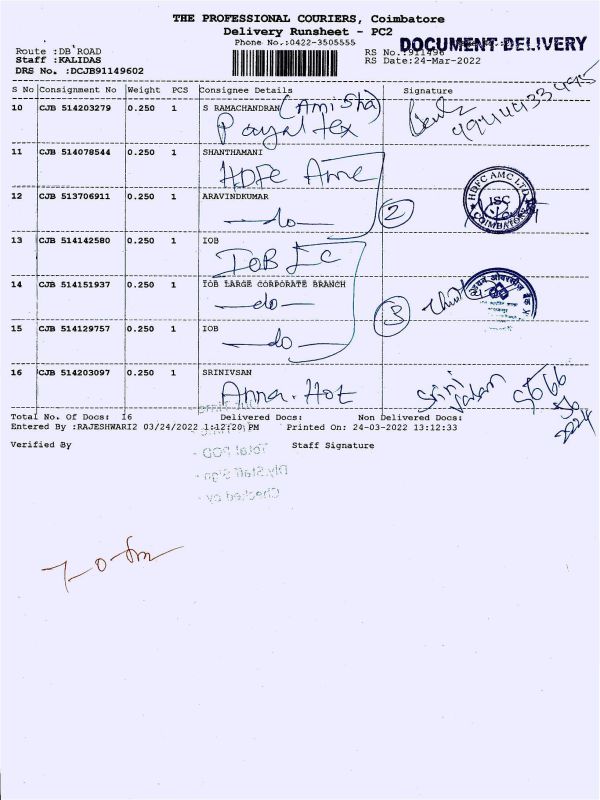 THE PROFESSIONAL COURIERS, Coimbatore
Delivery Runsheet - PC2
Phone No.:0422-3505555
DOCUMENT DELIVERY
Route :DB ROAD
Staff :KALIDAS
DRS No. :DCJB91149602
RS No.:911496
RS Date:24-Mar-2022
S No Consignment No Weight PCS Consignee Details Signature
10 CJB 514203279 0.250 1 S RAMACHANDRAN (Amisha)
Payal tex
11 CJB 514078544 0.250 1 SHANTHAMANI
HDFC Amc
12 CJB 513706911 0.250 1 ARAVINDKUMAR
—do—
2
HDFC AMC LTD
ISC
COIMBATORE
13 CJB 514142580 0.250 1 IOB
IOB LC
14 CJB 514151937 0.250 1 IOB LARGE CORPORATE BRANCH
—do—
3
15 CJB 514129757 0.250 1 IOB
—do—
16 CJB 514203097 0.250 1 SRINIVSAN
Anna. Hot
Total No. Of Docs: 16 Delivered Docs: Non Delivered Docs:
Entered By :RAJESHWARI2 03/24/2022 1:12:20 PM Printed On: 24-03-2022 13:12:33
Verified By Staff Signature
Total POD -
Dly.Staff Sign -
Checked by -